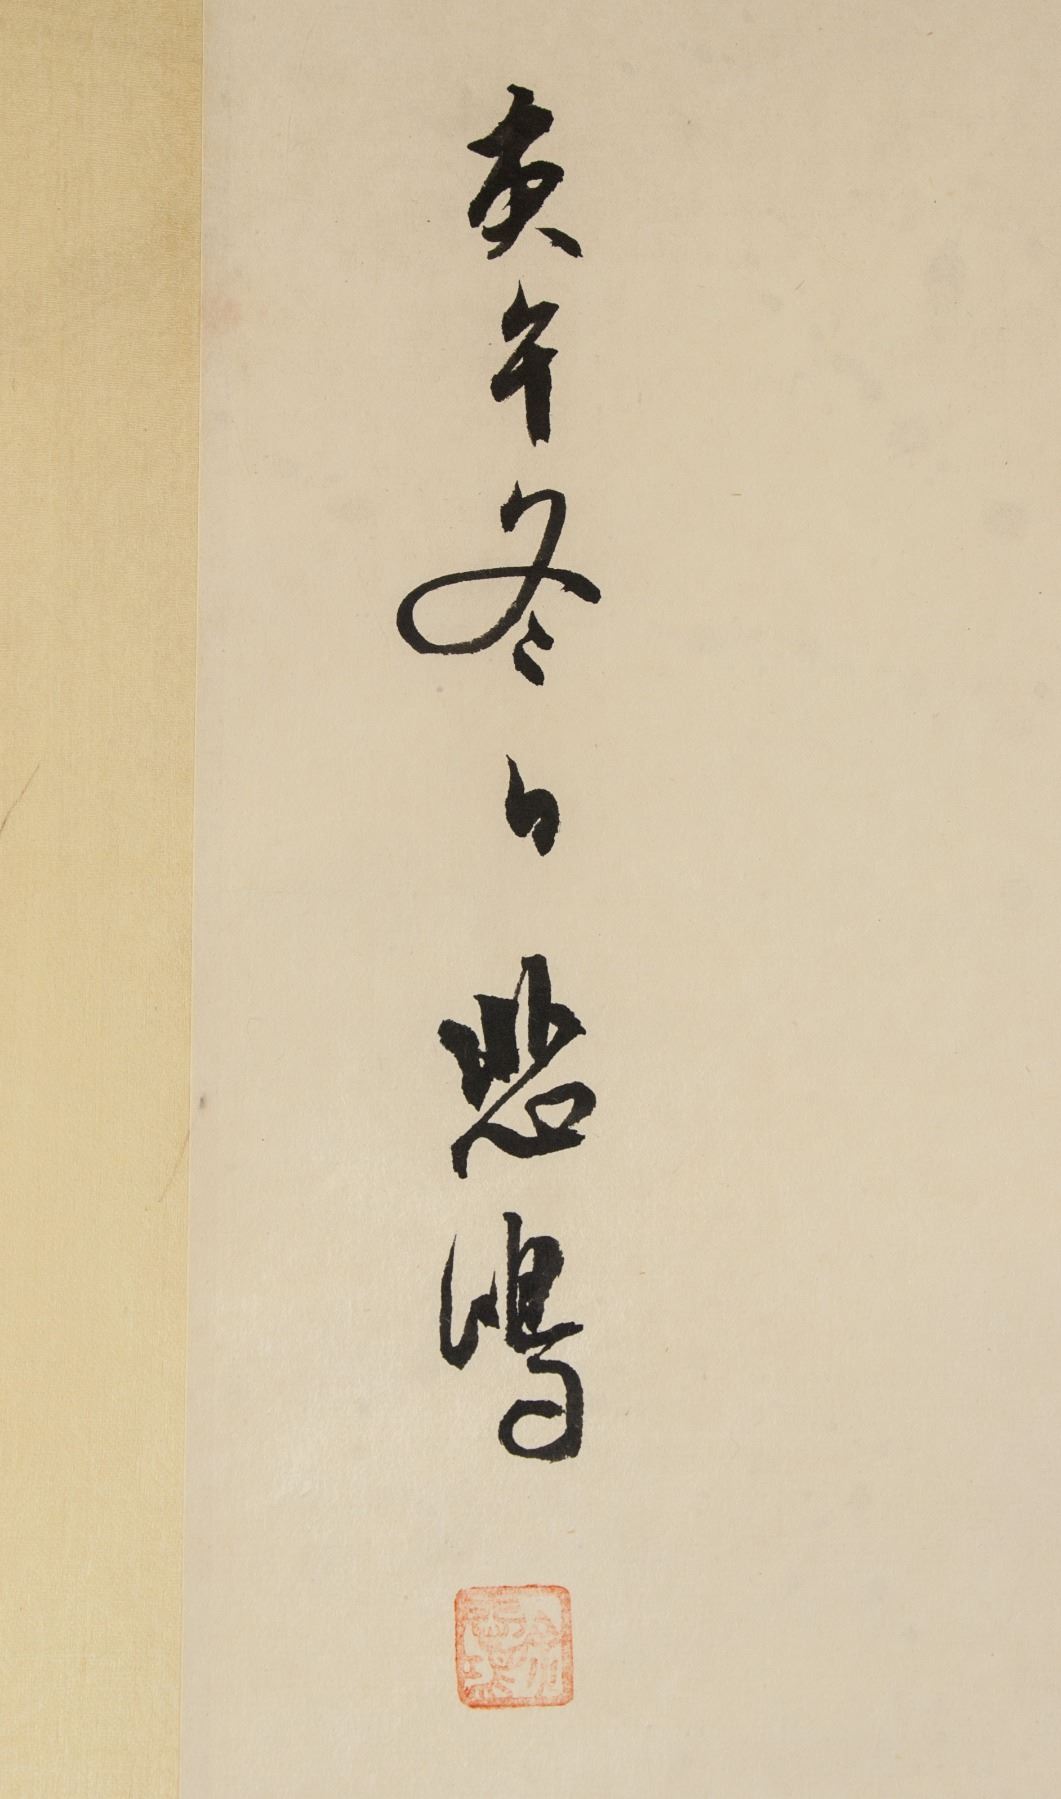 庚午冬日悲鴻